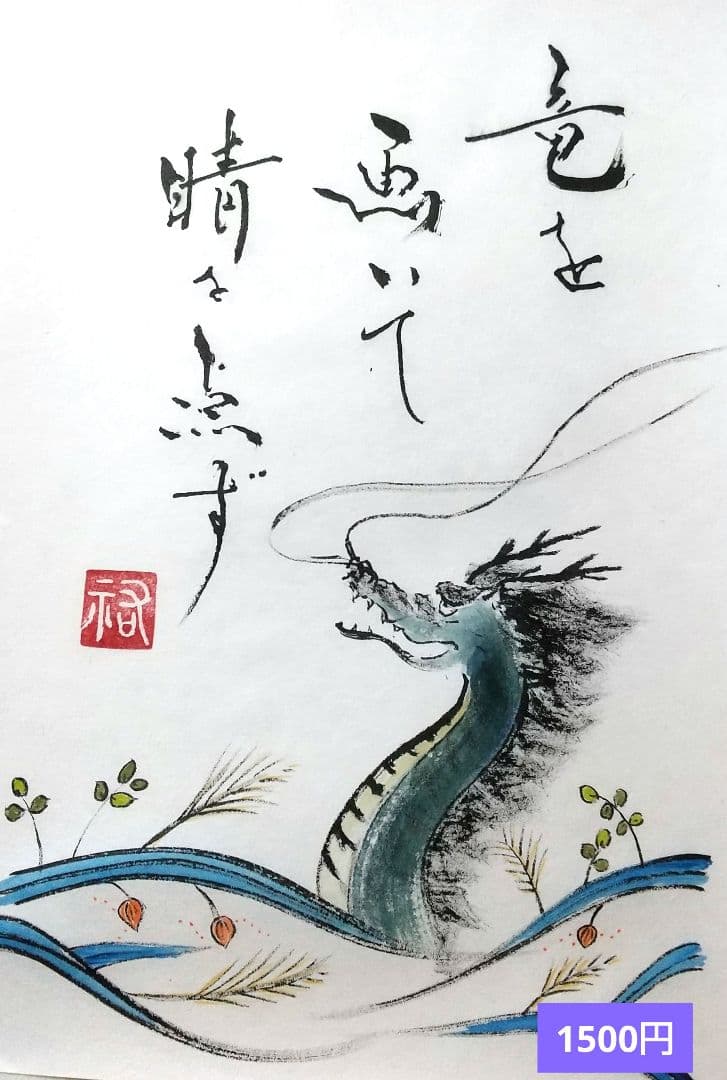 竜を
画いて
晴を点ず
祐
1500円